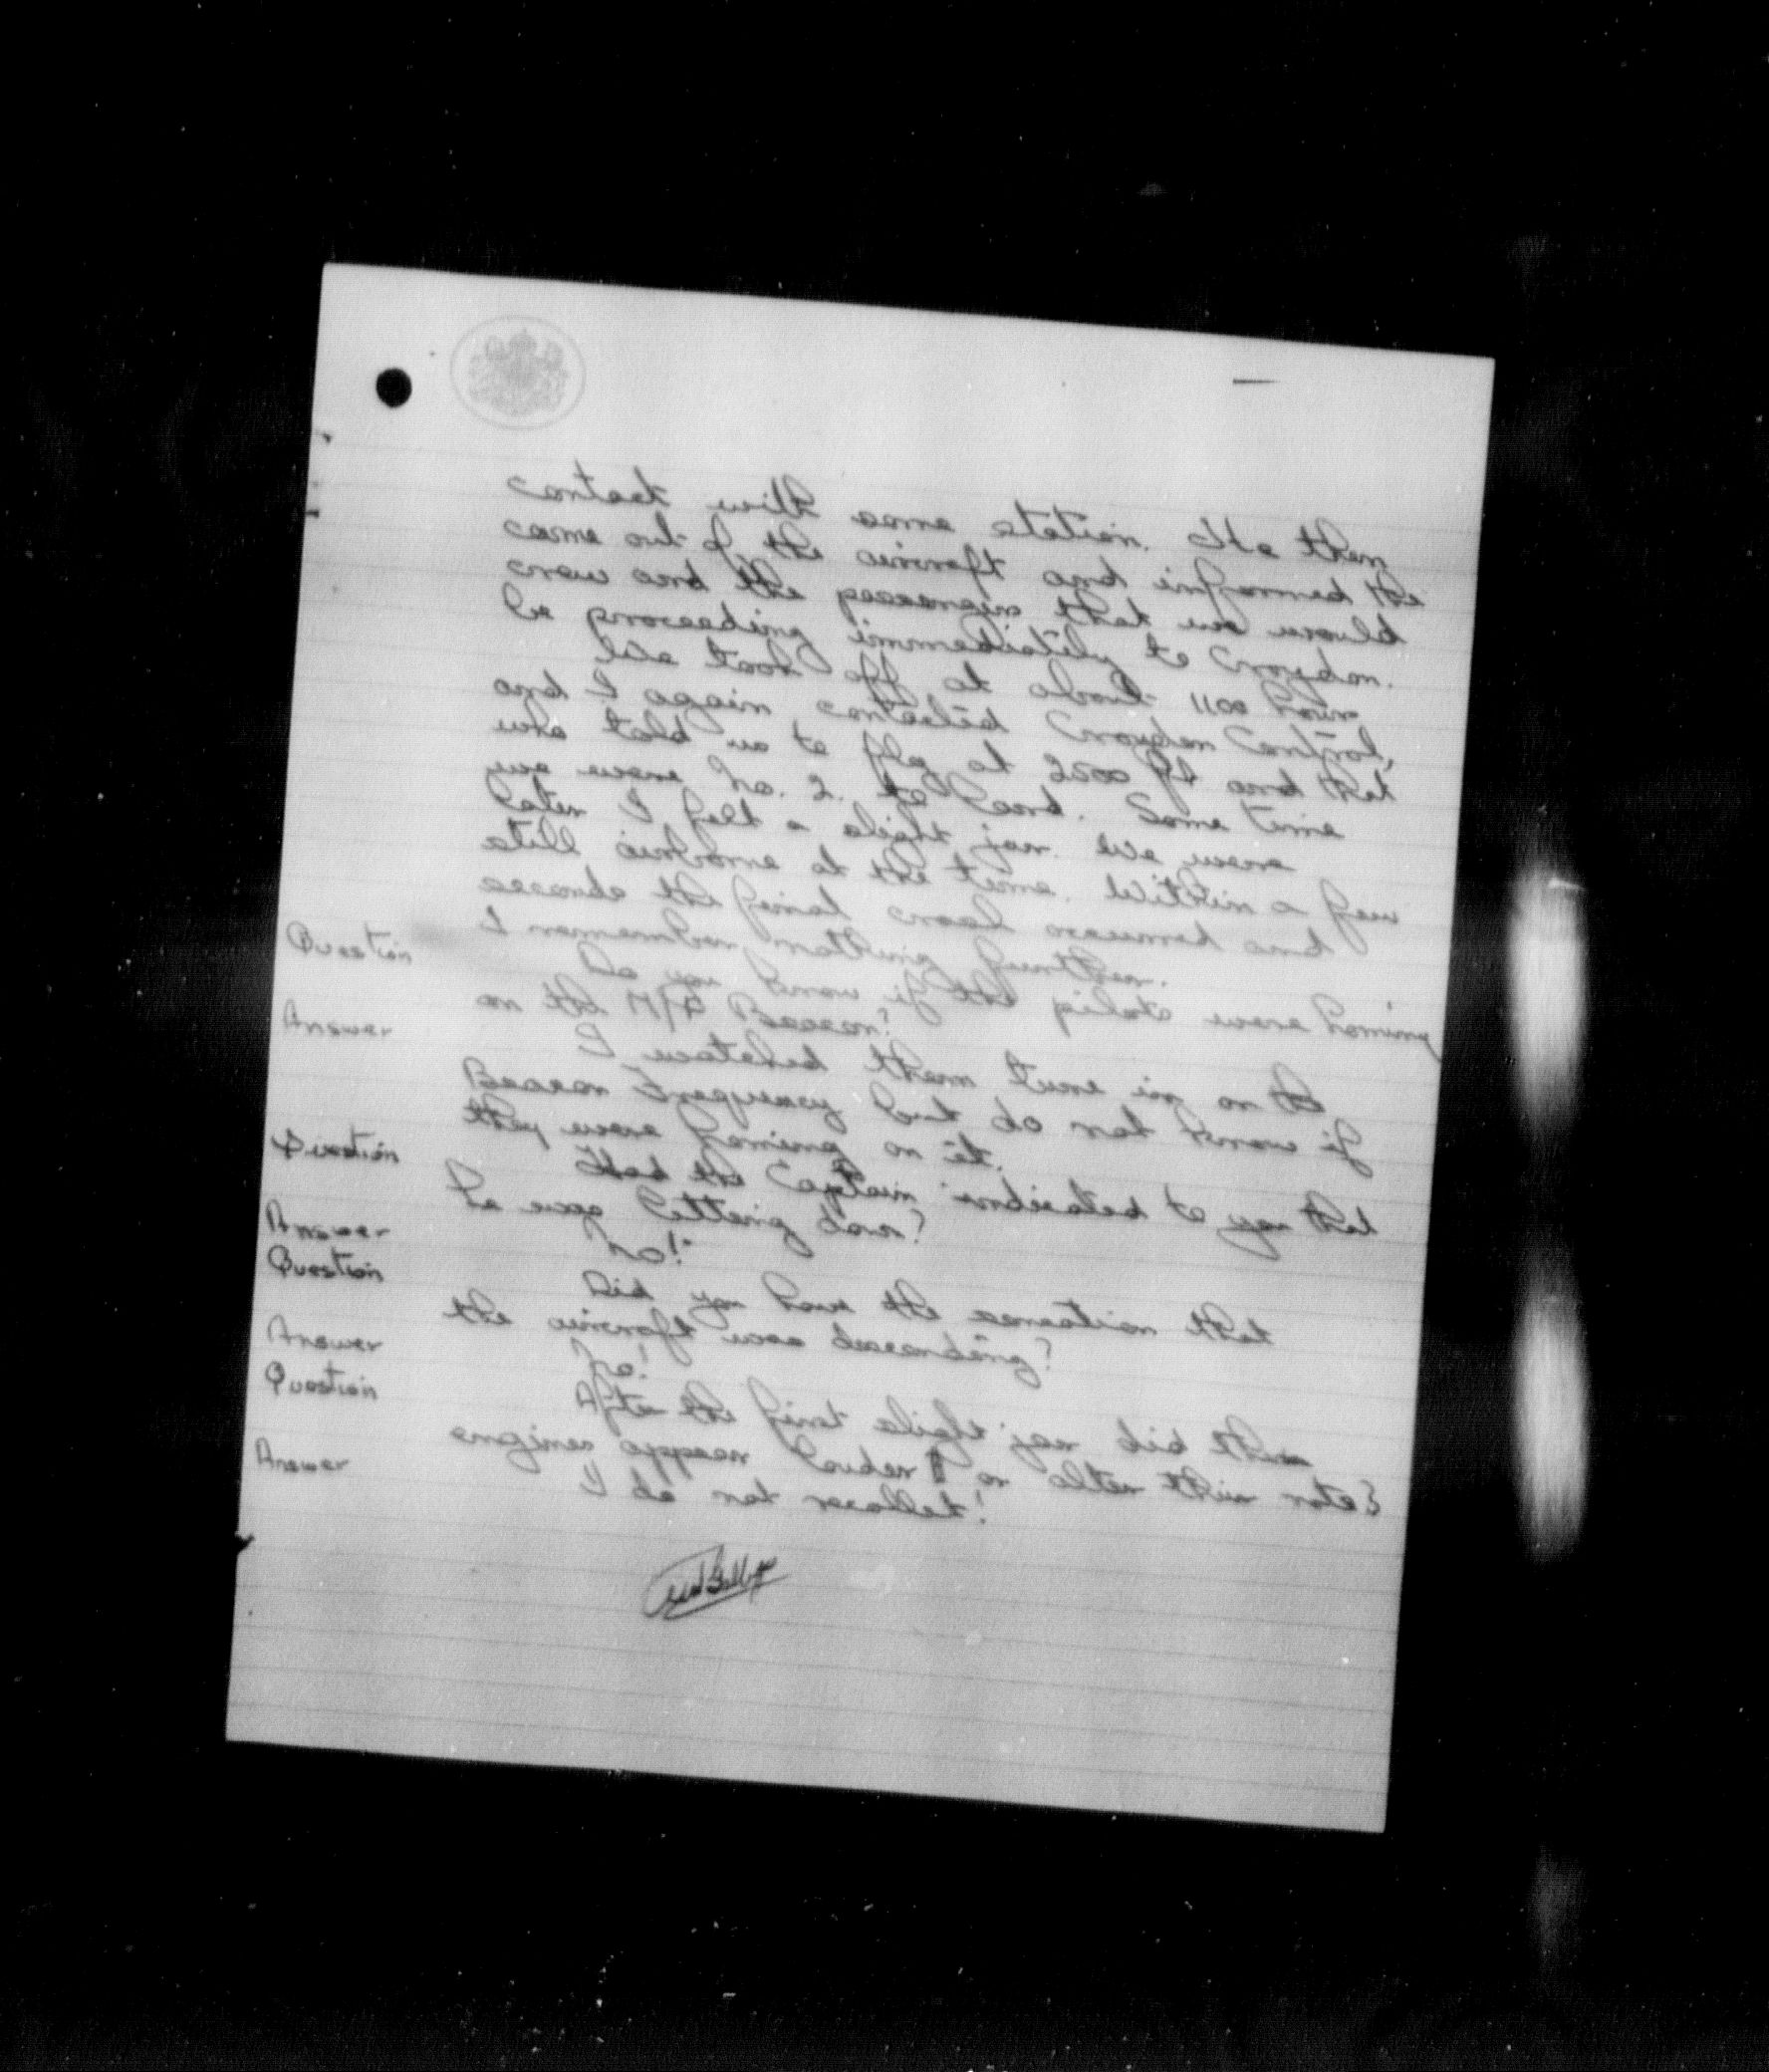 contact with some station. He then
came out of the aircraft and informed the
crew and the passengers that we would
be proceeding immediately to Croydon.
We took off at about 1100 hours
and I again contacted Croydon Control,
who told us to fly at 2500 ft and that
we were No. 2. to land. Some time
later I felt a slight jar. We were
still airborne at the time. Within a few
seconds the final crash occurred and
I remember nothing further.
Question Do you know if the pilots were homing
on the M/F Beacon?
Answer I watched them tune in on the
Beacon Frequency but do not know if
they were homing on it.
Question Had the Captain indicated to you that
he was letting down?
Answer No!
Question Did you have the sensation that
the aircraft was descending?
Answer No!
Question After the first slight jar did the
engines appear louder or alter their note?
Answer I do not recollect!